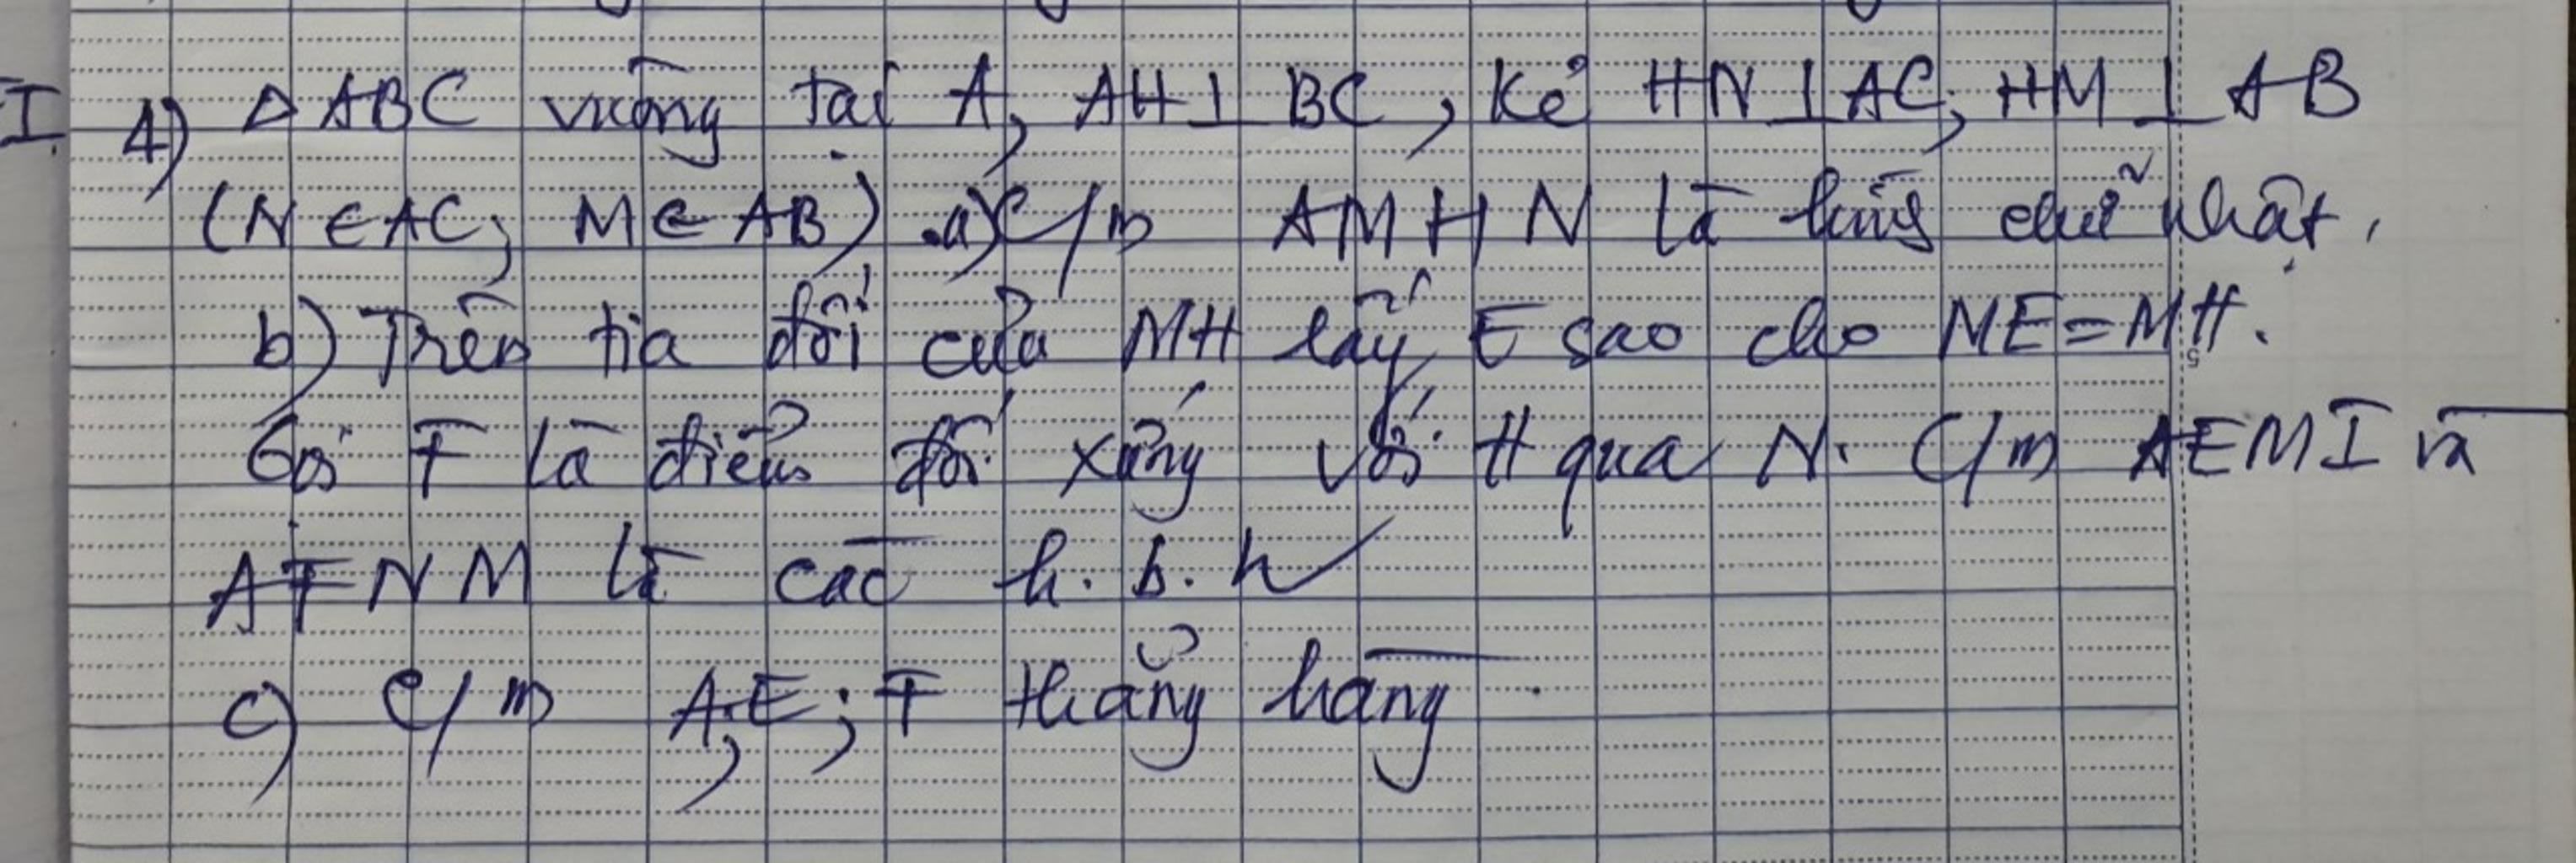 I 4) Δ ABC vuông tại A, AH⊥ BC, Kẻ HN⊥AC, HM ⊥ AB
(N ∈ AC; M ∈ AB) .a) C/m AMHN là hình chữ nhật.
b) Trên tia đối của MH lấy E sao cho ME=MH.
Gọi F là điểm đối xứng với H qua N. C/m AEMI và
AFNM là các h.b.h
c) C/m A; E; F thẳng hàng.